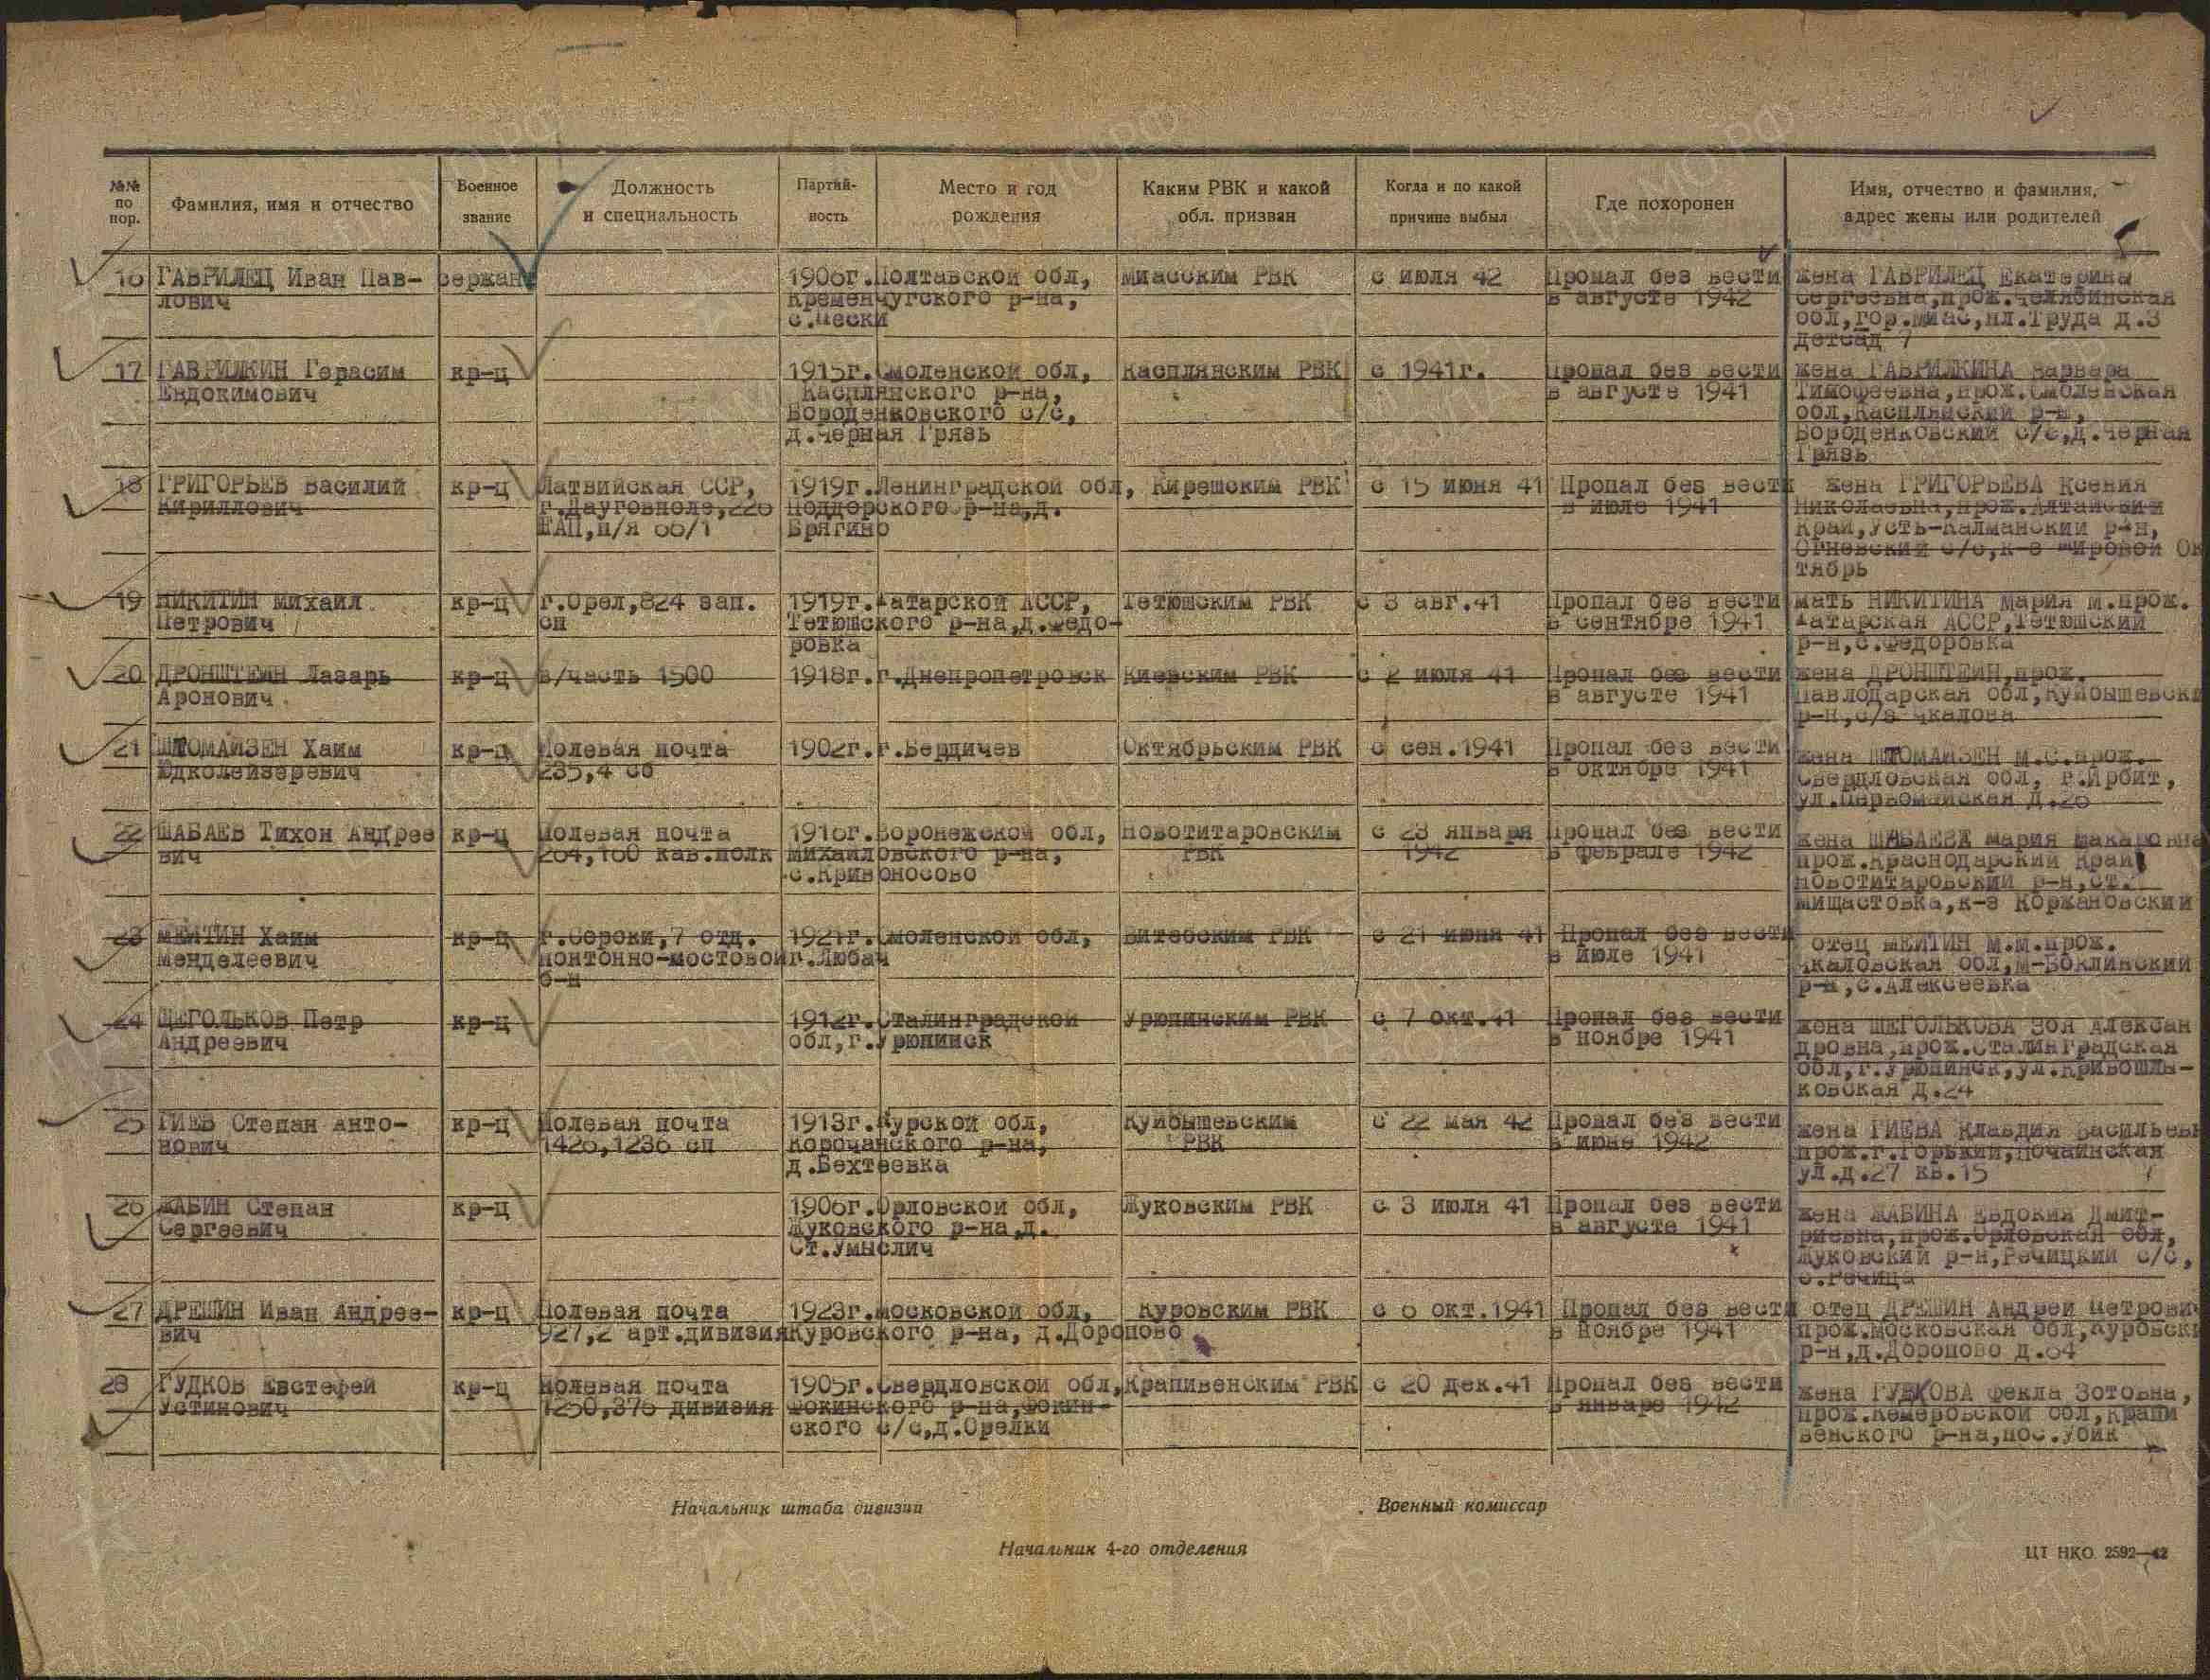 №№ по пор.
Фамилия, имя и отчество
Военное звание
Должность и специальность
Партий-ность
Место и год рождения
Каким РВК и какой обл. призван
Когда и по какой причине выбыл
Где похоронен
Имя, отчество и фамилия, адрес жены или родителей
16 ГАВРИЛЕЦ Иван Пав- сержант 1906г.Полтавской обл, Миасским РВК с июля 42 Пропал без вести жена ГАВРИЛЕЦ Екатерина
лович Кременчугского р-на, в августе 1942 Сергеевна,прож.Челябинская
с.Пески обл,гор.Миас,пл.Труда д.3
детсад 7
17 ГАВРИЛКИН Герасим кр-ц 1915г.Смоленской обл, Касплянским РВК с 1941г. Пропал без вести жена ГАВРИЛКИНА Варвара
Евдокимович Касплянского р-на, в августе 1941 Тимофеевна,прож.Смоленская
Вороденковского с/с, обл,Касплянский р-н,
д.Черная Грязь Вороденковский с/с,д.Черная
Грязь
18 ГРИГОРЬЕВ Василий кр-ц Латвийская ССР, 1919г.Ленинградской обл, Киришским РВК с 15 июня 41 Пропал без вести жена ГРИГОРЬЕВА Ксения
Кириллович г.Дауговполе,226 Поддорского р-на,д. в июле 1941 Николаевна,прож.Алтайский
ГАП,п/я 66/1 Брягино Край,Усть-Калманский р-н,
Огневский с/с,к-з Мировой Ок
тябрь
19 НИКИТИН Михаил кр-ц г.Орел,824 зап. 1919г.Татарской АССР, Тетюшским РВК с 3 авг.41 Пропал без вести мать НИКИТИНА Мария М.прож.
Петрович сп Тетюшского р-на,д.Федо- в сентябре 1941 Татарская АССР,Тетюшский
ровка р-н,с.Федоровка
20 ДРОНШТЕИН Лазарь кр-ц в/часть 1500 1918г.г.Днепропетровск Киевским РВК с 2 июля 41 Пропал без вести жена ДРОНШТЕИН,прож.
Аронович в августе 1941 Павлодарская обл,Куйбышевски
р-н,с/з Чкалова
21 ШТОМАЙЗЕН Хаим кр-ц Полевая почта 1902г.г.Бердичев Октябрьским РВК с сен.1941 Пропал без вести жена ШТОМАЙЗЕН М.С.прож.
Юдколейзеревич 235,4 сб в октябре 1941 Свердловская обл, г.Ирбит,
ул.Первомайская д.26
22 ШАБАЕВ Тихон Андрее кр-ц Полевая почта 1916г.Воронежской обл, Новотитаровским с 23 января Пропал без вести жена ШАБАЕВА Мария Макаровна
вич 264,160 кав.полк Михайловского р-на, РВК 1942 в феврале 1942 прож.Краснодарский край
с.Кривоносово Новотитаровский р-н,ст.
Мищастовка,к-з Коржановский
23 МЕЙТИН Хаим кр-ц г.Сороки,7 отд. 1921г.Смоленской обл, Витебским РВК с 21 июня 41 Пропал без вести отец МЕЙТИН М.М.прож.
Менделеевич понтонно-мостовой г.Любач в июле 1941 Чкаловская обл,М-Боклинский
б-н р-н,с.Алексеевка
24 ЩЕГОЛЬКОВ Петр кр-ц 1912г.Сталинградской Урюпинским РВК с 7 окт.41 Пропал без вести жена ЩЕГОЛЬКОВА Зоя Алексан
Андреевич обл,г.Урюпинск в ноябре 1941 дровна,прож.Сталинградская
обл,г.Урюпинск,ул.Кривошлы-
ковская д.24
25 ГИЕВ Степан Анто- кр-ц Полевая почта 1913г.Курской обл, Куйбышевским с 22 мая 42 Пропал без вести жена ГИЕВА Клавдия Васильевн
нович 1426,1236 сп Корочанского р-на, РВК в июне 1942 прож.г.Горький,Почаинская
д.Бехтеевка ул.д.27 кв.15
26 ЖАБИН Степан кр-ц 1906г.Орловской обл, Жуковским РВК с 3 июля 41 Пропал без вести жена ЖАБИНА Евдокия Дмит-
Сергеевич Жуковского р-на,д. в августе 1941 риевна,прож.Орловская обл,
Ст.Умыслич Жуковский р-н,Речицкий с/с,
с.Речица
27 ДРЕШИН Иван Андрее- кр-ц Полевая почта 1923г.Московской обл, Куровским РВК с 6 окт.1941 Пропал без вести отец ДРЕШИН Андрей Петрович
вич 927,2 арт.дивизия Куровского р-на, д.Доропово в ноябре 1941 прож.Московская обл,Куровски
р-н,д.Доропово д.64
28 ГУДКОВ Евстефей кр-ц Полевая почта 1905г.Свердловской обл, Крапивенским РВК с 20 дек.41 Пропал без вести жена ГУДКОВА Фекла Зотовна,
Устинович 1250,376 дивизия Фокинского р-на,Фокин- в январе 1942 прож.Кемеровской обл,Крапи
ского с/с,д.Орелки венского р-на,пос.Убик
Начальник штаба дивизии
Военный комиссар
Начальник 4-го отделения
ЦТ НКО. 2592—42